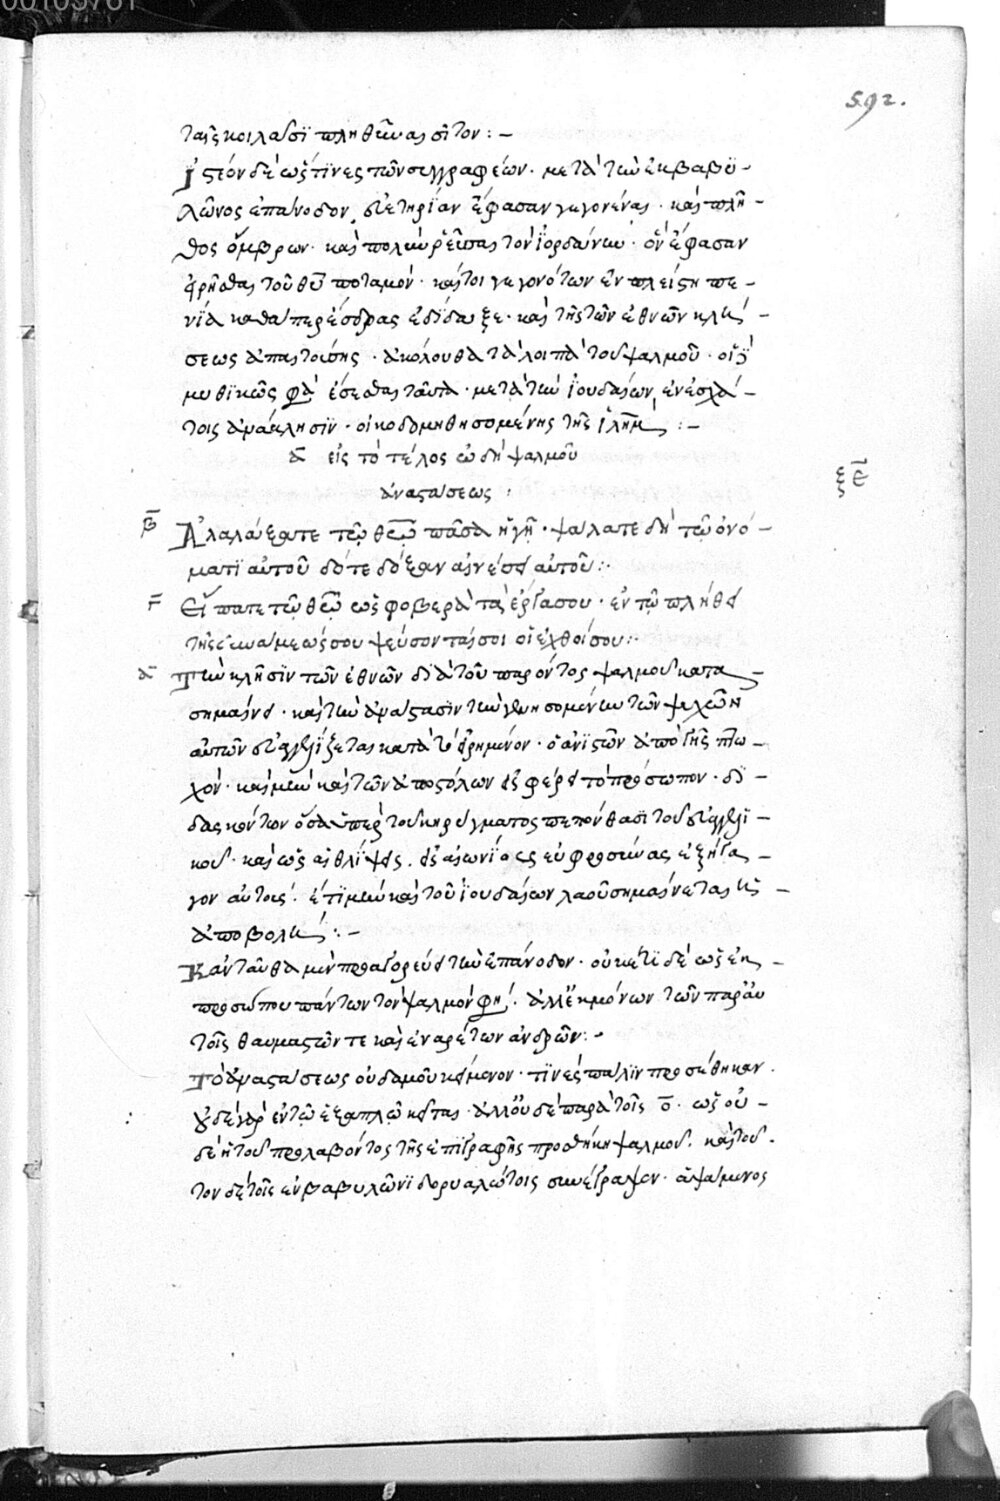 592.
ταῖς κοιλάσι πληθῦναι σῖτον : –
Ἰστέον δὲ ὡς τινὲς τῶν συγγραφέων · μετὰ τὴν ἐκ βαβυ –
λῶνος ἐπάνοδον, διετηρίαν ἔφασαν γεγονέναι · καὶ πλῆ –
θος ὄμβρων · καὶ πολὺν ῥεῦσαι τὸν ἰορδάνην · ὃν ἔφασαν
εἰρῆσθαι τοῦ θυ ποταμόν · καίτοι γεγονότων ἐν πλείστῃ πε –
νίᾳ καθάπερ ἔσδρας ἐδίδαξε · καὶ τῆς τῶν ἐθνῶν κλή –
σεως ἀπαιτούσης · ἀκόλουθα τὰ λοιπὰ τοῦ ψαλμοῦ ·
μυθικῶς ἔσεσθαι ταῦτα · μετὰ τὴν ἰουδαίων ἐν ἐσχά –
τοις ἀνάκλησιν · οἰκοδομηθησομένης τῆς ἱλημ : –
α εἰς τὸ τέλος ὠδὴ ψαλμοῦ
ἀναστάσεως ·
ξε
β Ἀλαλάξατε τῷ θεῷ πᾶσα ἡ γῆ · ψάλατε δὴ τῷ ὀνό –
ματι αὐτοῦ δότε δόξαν αἰνέσει αὐτοῦ :·
γ Εἴπατε τῷ θεῷ ὡς φοβερὰ τὰ ἔργα σου · ἐν τῷ πλήθει
τῆς δυνάμεώς σου ψεύσονταί σοι οἱ ἐχθροί σου :·
α Τὴν κλῆσιν τῶν ἐθνῶν διὰ τοῦ παρόντος ψαλμοῦ κατα –
σημαίνει · καὶ τὴν ἀνάστασιν τὴν γενησομένην τῶν ψυχῶν
αὐτῶν εὐαγγελίζεται κατὰ τὸ εἰρημένον · ὁ ἀνιστῶν ἀπὸ γῆς πτω –
χόν · καὶ μὴν καὶ τῶν ἀποστόλων εἰσφέρει τὸ πρόσωπον · δι –
δασκόντων ὅσα ὑπὲρ τοῦ κηρύγματος πεπόνθασι τοῦ εὐαγγελι –
κοῦ · καὶ ὡς αἱ θλίψεις · εἰς αἰωνίους εὐφροσύνας ἐξήγα –
γον αὐτούς · ἔτι μὴν καὶ τοῦ ἰουδαίων λαοῦ σημαίνεται ἡ
ἀποβολή : –
Κἀνταῦθα μὲν προαγορεύει τὴν ἐπάνοδον · οὐκέτι δὲ ὡς ἐκ –
προσώπου πάντων τὸν ψαλμόν φησι · ἀλλ' ἐκ μόνων τῶν παρ' αὐ
τοῖς θαυμαστῶν τε καὶ ἐναρέτων ἀνδρῶν : –
Τὸ ἀναστάσεως οὐδαμοῦ κείμενον · τινὲς πάλιν προσέθηκαν ·
οὐδὲ γὰρ ἐν τῷ ἑξαπλῷ κεῖται · ἀλλ' οὐδὲ παρὰ τοῖς ο · ὡς οὐ –
δὲ ἡ τοῦ προλαβόντος τῆς ἐπιγραφῆς προσθήκη ψαλμοῦ · καὶ τοῦ ·
τον δὲ τοῖς ἐν βαβυλῶνι δορυαλώτοις συνέγραψεν · ἁψάμενος